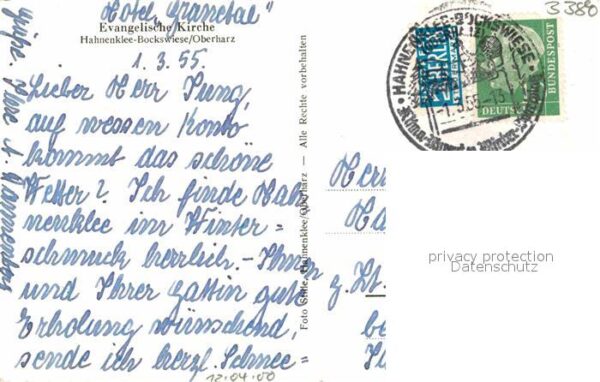 Hotel "Granetal"
Evangelische Kirche
Hahnenklee-Bockswiese/Oberharz
1. 3. 55.
Lieber Herr Jung,
auf wessen Konto
kommt das schöne
Wetter? Ich finde Hah=
nenklee im Winter=
schmuck herrlich. - Ihnen
und Ihrer Gattin gute
Erholung wünschend,
sende ich herzl. Schnee=
grüße. Ihre
12.04.00
Foto Stille, Hahnenklee/Oberharz — Alle Rechte vorbehalten
3388
HAHNENKLEE-BOCKSWIESE
-1.3.55-15
DEUTSCHE
BUNDESPOST
Herr
z. Zt.
privacy protection
Datenschutz